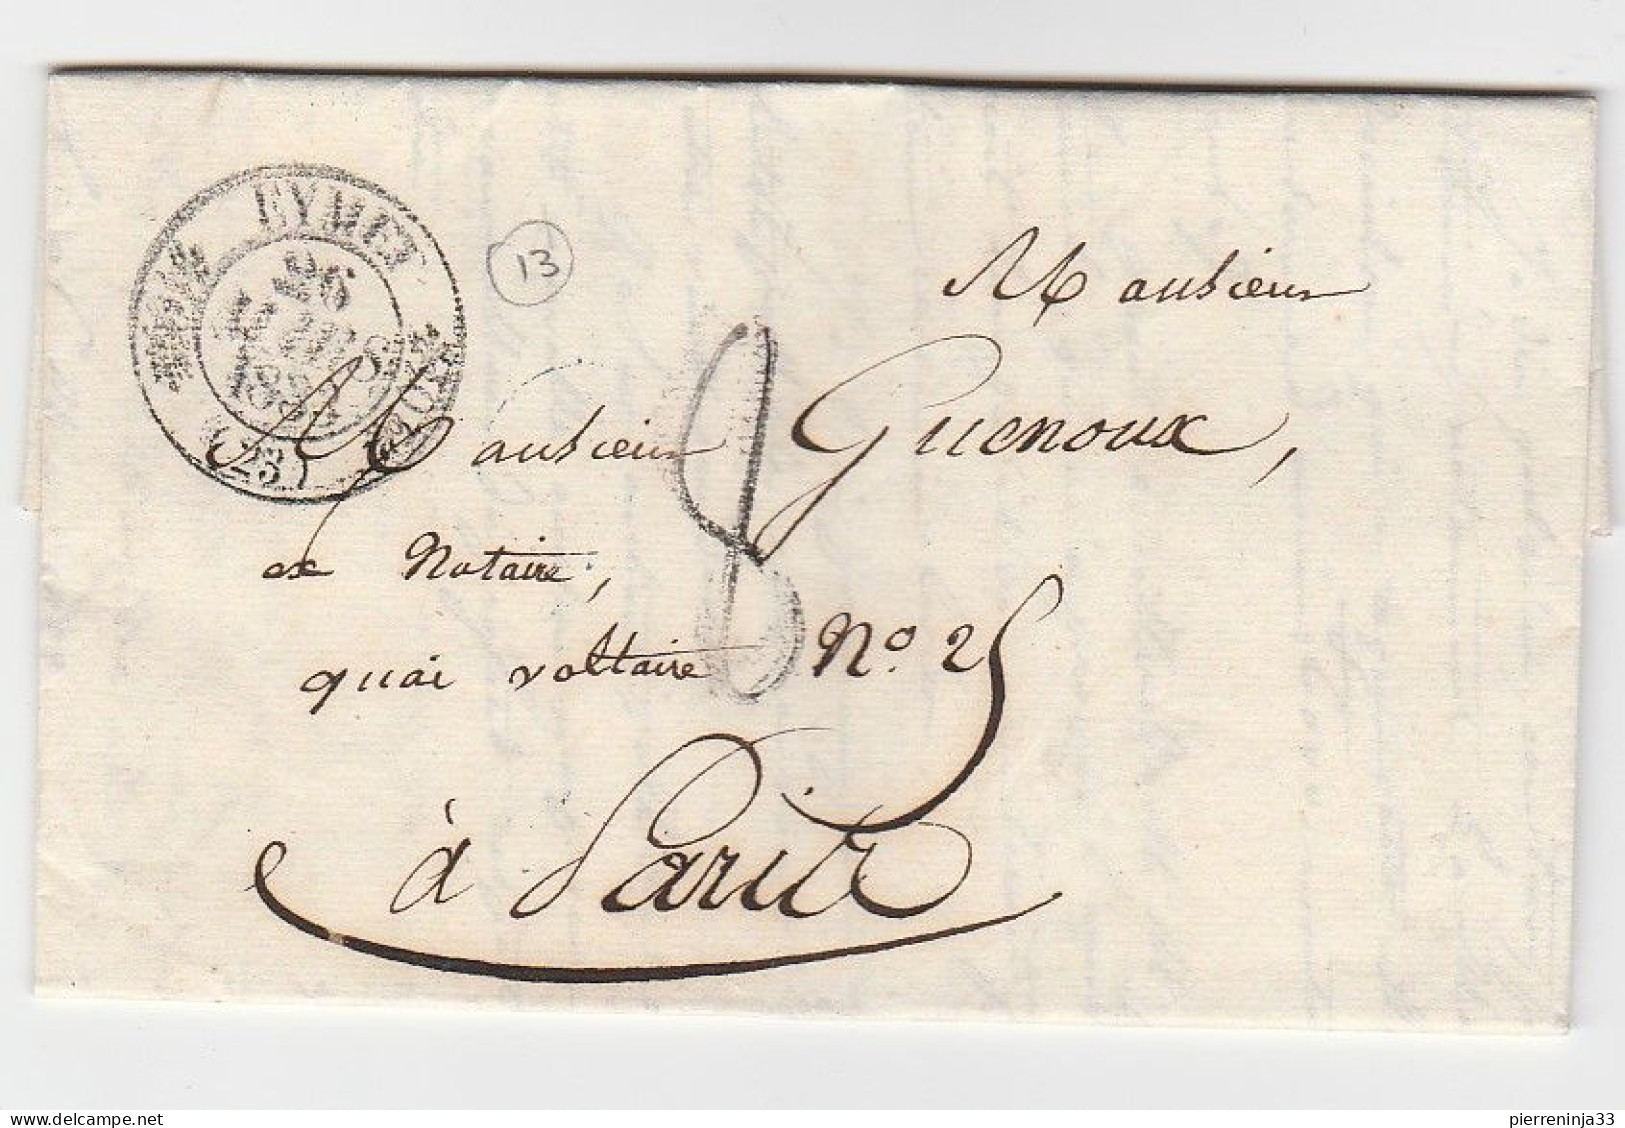 EYMET
(23)
13
Monsieur
Monsieur Guenoux,
ex Notaire,
quai voltaire No. 25
à Paris
delcampe.net
pierreninja33